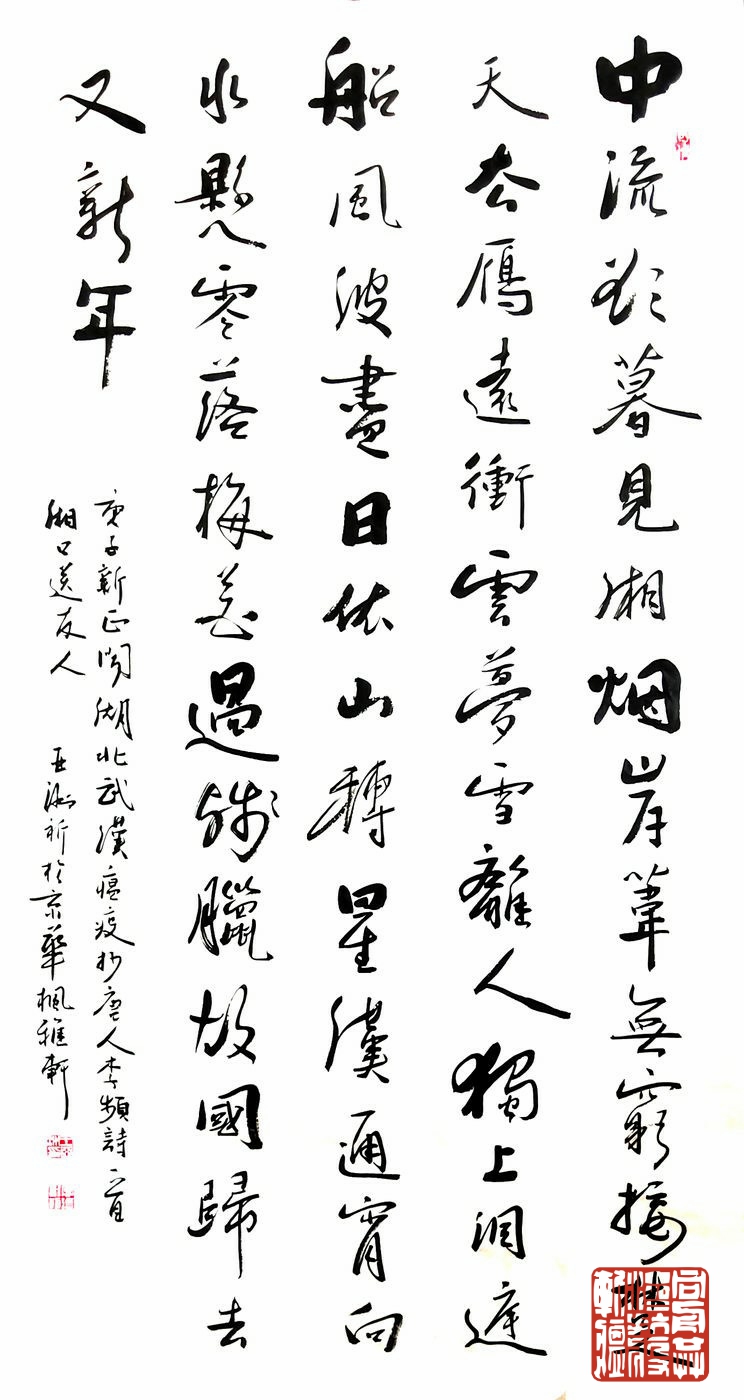 中流欲暮見湘烟岸葦無窮接楚
天去雁遠衝雲夢雪離人獨上洞庭
船風波盡日依山轉星漢通宵向
水懸零落梅花過殘臘故國歸去
又新年
庚子新正聞湖北武漢瘟疫抄唐人李頻詩一首
湘口送友人 亞 祈於京華楓雅軒